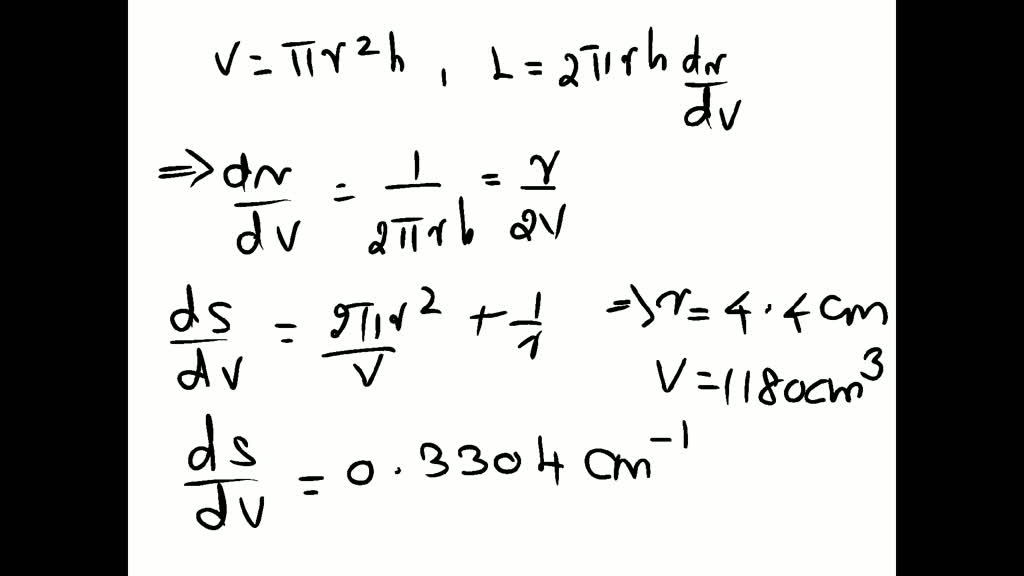 V = πr²h , L = 2πrh dr/dV
=> dr/dV = 1/2πrh = r/2V
ds/dV = 2πr²/V + 1/r => r = 4.4cm
V = 1180cm³
ds/dV = 0.3304 cm⁻¹